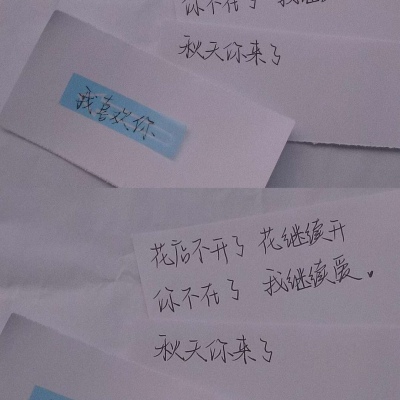 你不在了 我继续
秋天你来了
我喜欢你
花店不开了 花继续开
你不在了 我继续爱。
秋天你来了